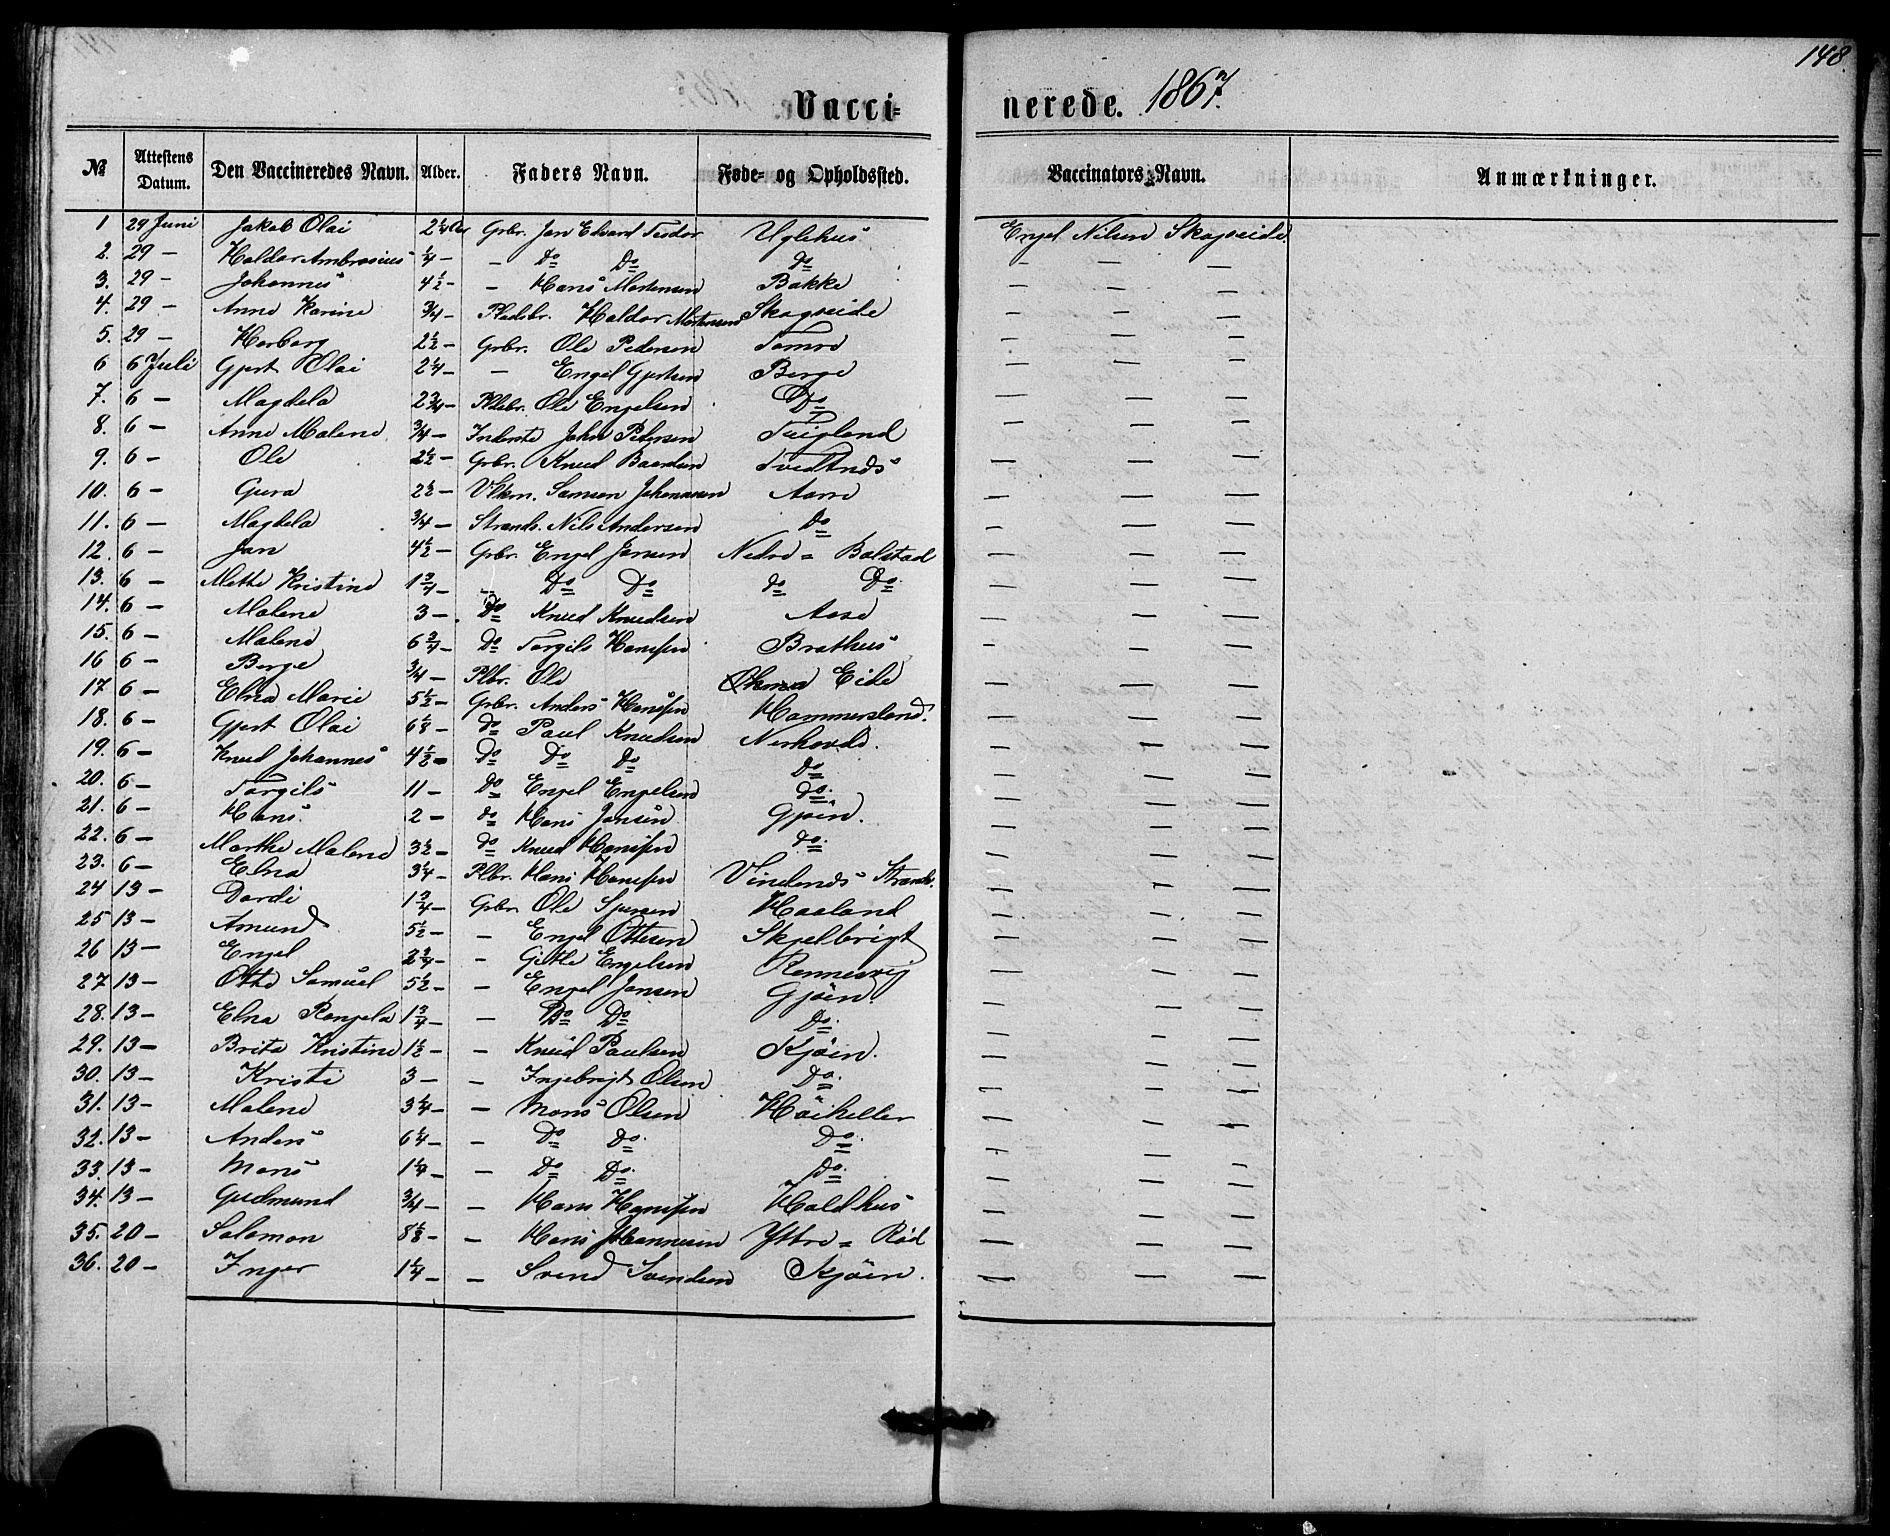 148.
Vacci= nerede. 1867.
№ Attestens Datum. Den Vaccineredes Navn. Alder. Faders Navn. Føde- og Opholdssted. Vaccinators Navn. Anmærkninger.
1 29 Juni Jakob Olai 2 1/4 Aar Grbr. Jan Edvard Teodor Uglehus Engel Nilsen Skogseide.
2. 29 — Haldor Ambrosius 1/4 — — Do Do do — — —
3. 29 — Johannes 4 1/2 — — Hans Mortensen Bakke — — —
4. 29 — Anne Karine 3/4 — Pladsbr. Haldor Mortensen Skogseide — — —
5. 29 — Herborg 2 1/2 — Grbr. Ole Pedersen Tomre — — —
6 6 Juli Gjert Olai 2 1/4 — — Engel Gjertsen Berge — — —
7. 6 — Magdela 2 3/4 — Pldsbr. Ole Engelsen Do — — —
8. 6 — Anne Malene 3/4 — Inderste John Pedersen — — —
9. 6 — Ole 2 1/2 — Grbr. Knud Baardsen — — —
10. 6 — Gura 2 1/2 — Samson Johannesen Aarre — — —
11. 6 — Magdela 3/4 — Strands. Nils Andersen Do — — —
12. 6 — Jan 4 1/2 — Grbr. Engel Jansen Nedre = Bolstad — — —
13. 6 — Mette Kristine 1 3/4 — — Do Do do Do. — — —
14. 6 — Malene 3 — Do Knud Knudsen Aase — — —
15. 6 — Malene 6 3/4 — Do Torgils Hansen Brathus — — —
16 6 — Berge 3/4 — Plbr. Ole Eide — — —
17 6 — Elna Marie 5 1/2 — Grbr. Anders Hansen Hammersland. — — —
18. 6 — Gjert Olai 6 1/2 — do Paul Knudsen Nerhovde. — — —
19. 6 — Knud Johannes 4 1/2 — Do Do Do Do — — —
20. 6 — Torgils 11 — Do Engel Engelsen Do. — — —
21. 6 — Hans. 2 — do Hans Jansen Gjøen. — — —
22. 6 — Marthe Malene 3 1/2 — do Knud Hansen do. — — —
23. 6 — Elna 3 1/4 — Plbr. Hans Hansen Vindenes Strands. — — —
24 13 — Dordi 1 3/4 — Grbr. Ole Sjursen Haaland — — —
25 13 — Amund 5 1/2 — — Engel Ottesen Skjelbrigt — — —
26 13 — Engel 2 3/4 — — Gitle Engelsen Rennesvig — — —
27 13 — Otto Samuel 5 1/2 — — Engel Jansen Gjøen. — — —
28. 13 — Elna Rangela 1 3/4 — — Do Do Do. — — —
29. 13 — Brita Kristine 1 1/2 — — Knud Paulsen Kjøen. — — —
30. 13 — Kristi 3 — — Ingebrigt Olsen Do. — — —
31. 13 — Malene 3 1/4 — — Mons Olsen Høiheller — — —
32. 13 — Anders 6 1/4 — — Do Do. Do. — — —
33. 13 — Mons 1 1/4 — — Do Do. Do. — — —
34. 13 — Gudmund 3/4 — — Hans Hansen Holdhus — — —
35. 20 — Salomon 8 1/2 — — Hans Johannesen Ytre = Rød — — —
36. 20 — Inger 1 1/4 — — Svend Svendsen Kjøen. — — —